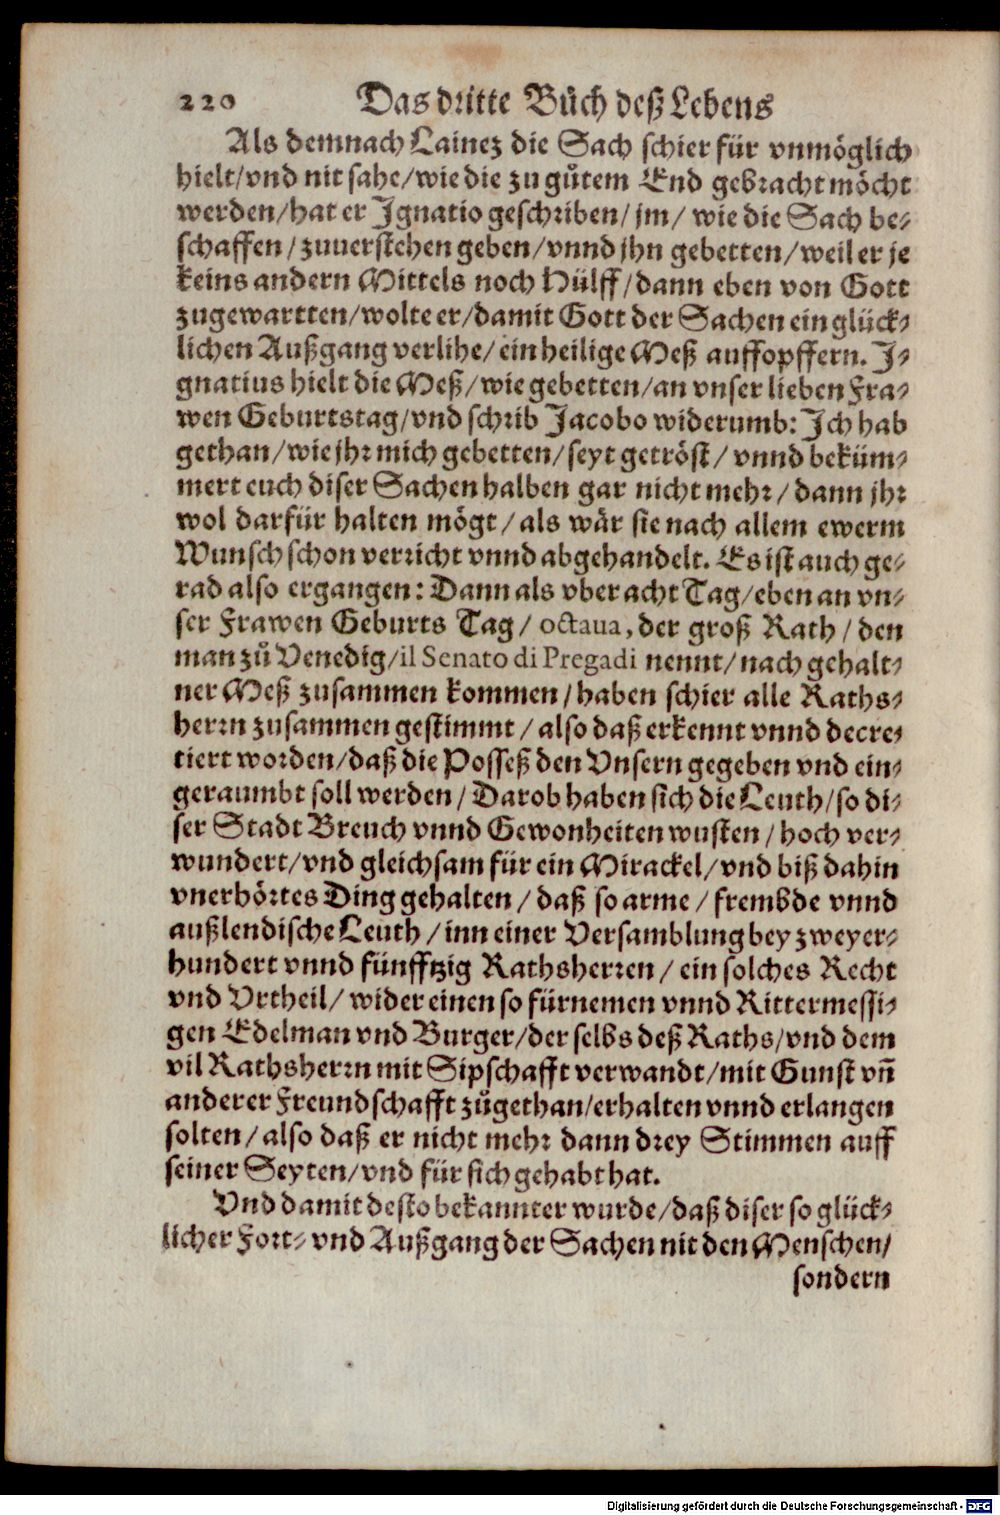 220 Das dritte Bůch deß Lebens
Als demnach Lainez die Sach schier für vnmöglich
hielt/vnd nit sahe/wie die zu gůtem End gebracht möcht
werden/hat er Ignatio geschriben/jm/ wie die Sach be-
schaffen/zuuerstehen geben/vnnd jhn gebetten/weil er je
keins andern Mittels noch Hülff/dann eben von Gott
zugewartten/wolte er/damit Gott der Sachen ein glück-
lichen Außgang verlihe/ein heilige Meß auffopffern. I-
gnatius hielt die Meß/wie gebetten/an vnser lieben Fra-
wen Geburtstag/vnd schrib Jacobo widerumb: Ich hab
gethan/wie jhr mich gebetten/seyt getröst/vnnd beküm-
mert euch diser Sachen halben gar nicht mehr/dann jhr
wol darfür halten mögt/als wär sie nach allem ewerm
Wunsch schon verricht vnnd abgehandelt. Es ist auch ge-
rad also ergangen: Dann als vber acht Tag/eben an vn-
ser Frawen Geburts Tag/ octaua, der groß Rath/den
man zů Venedig/il Senato di Pregadi nennt/nach gehalt-
ner Meß zusammen kommen/haben schier alle Raths-
herrn zusammen gestimmt/also daß erkennt vnnd decre-
tiert worden/daß die Posseß den Vnsern gegeben vnd ein-
geraumbt soll werden/Darob haben sich die Leuth/so di-
ser Stadt Breuch vnnd Gewonheiten wusten/hoch ver-
wundert/vnd gleichsam für ein Mirackel/vnd biß dahin
vnerhörtes Ding gehalten/daß so arme/frembde vnnd
außlendische Leuth/inn einer Versamblung bey zweyer-
hundert vnnd fünfftzig Rathsherren/ein solches Recht
vnd Vrtheil/wider einen so fürnemen vnnd Rittermessi-
gen Edelman vnd Burger/der selbs deß Raths/vnd dem
vil Rathsherrn mit Sipschafft verwandt/mit Gunst vñ
anderer Freundschafft zůgethan/erhalten vnnd erlangen
solten/also daß er nicht mehr dann drey Stimmen auff
seiner Seyten/vnd für sich gehabt hat.
Vnd damit desto bekannter wurde/daß diser so glück-
licher Fort- vnd Außgang der Sachen nit den Menschen/
sondern
Digitalisierung gefördert durch die Deutsche Forschungsgemeinschaft - DFG